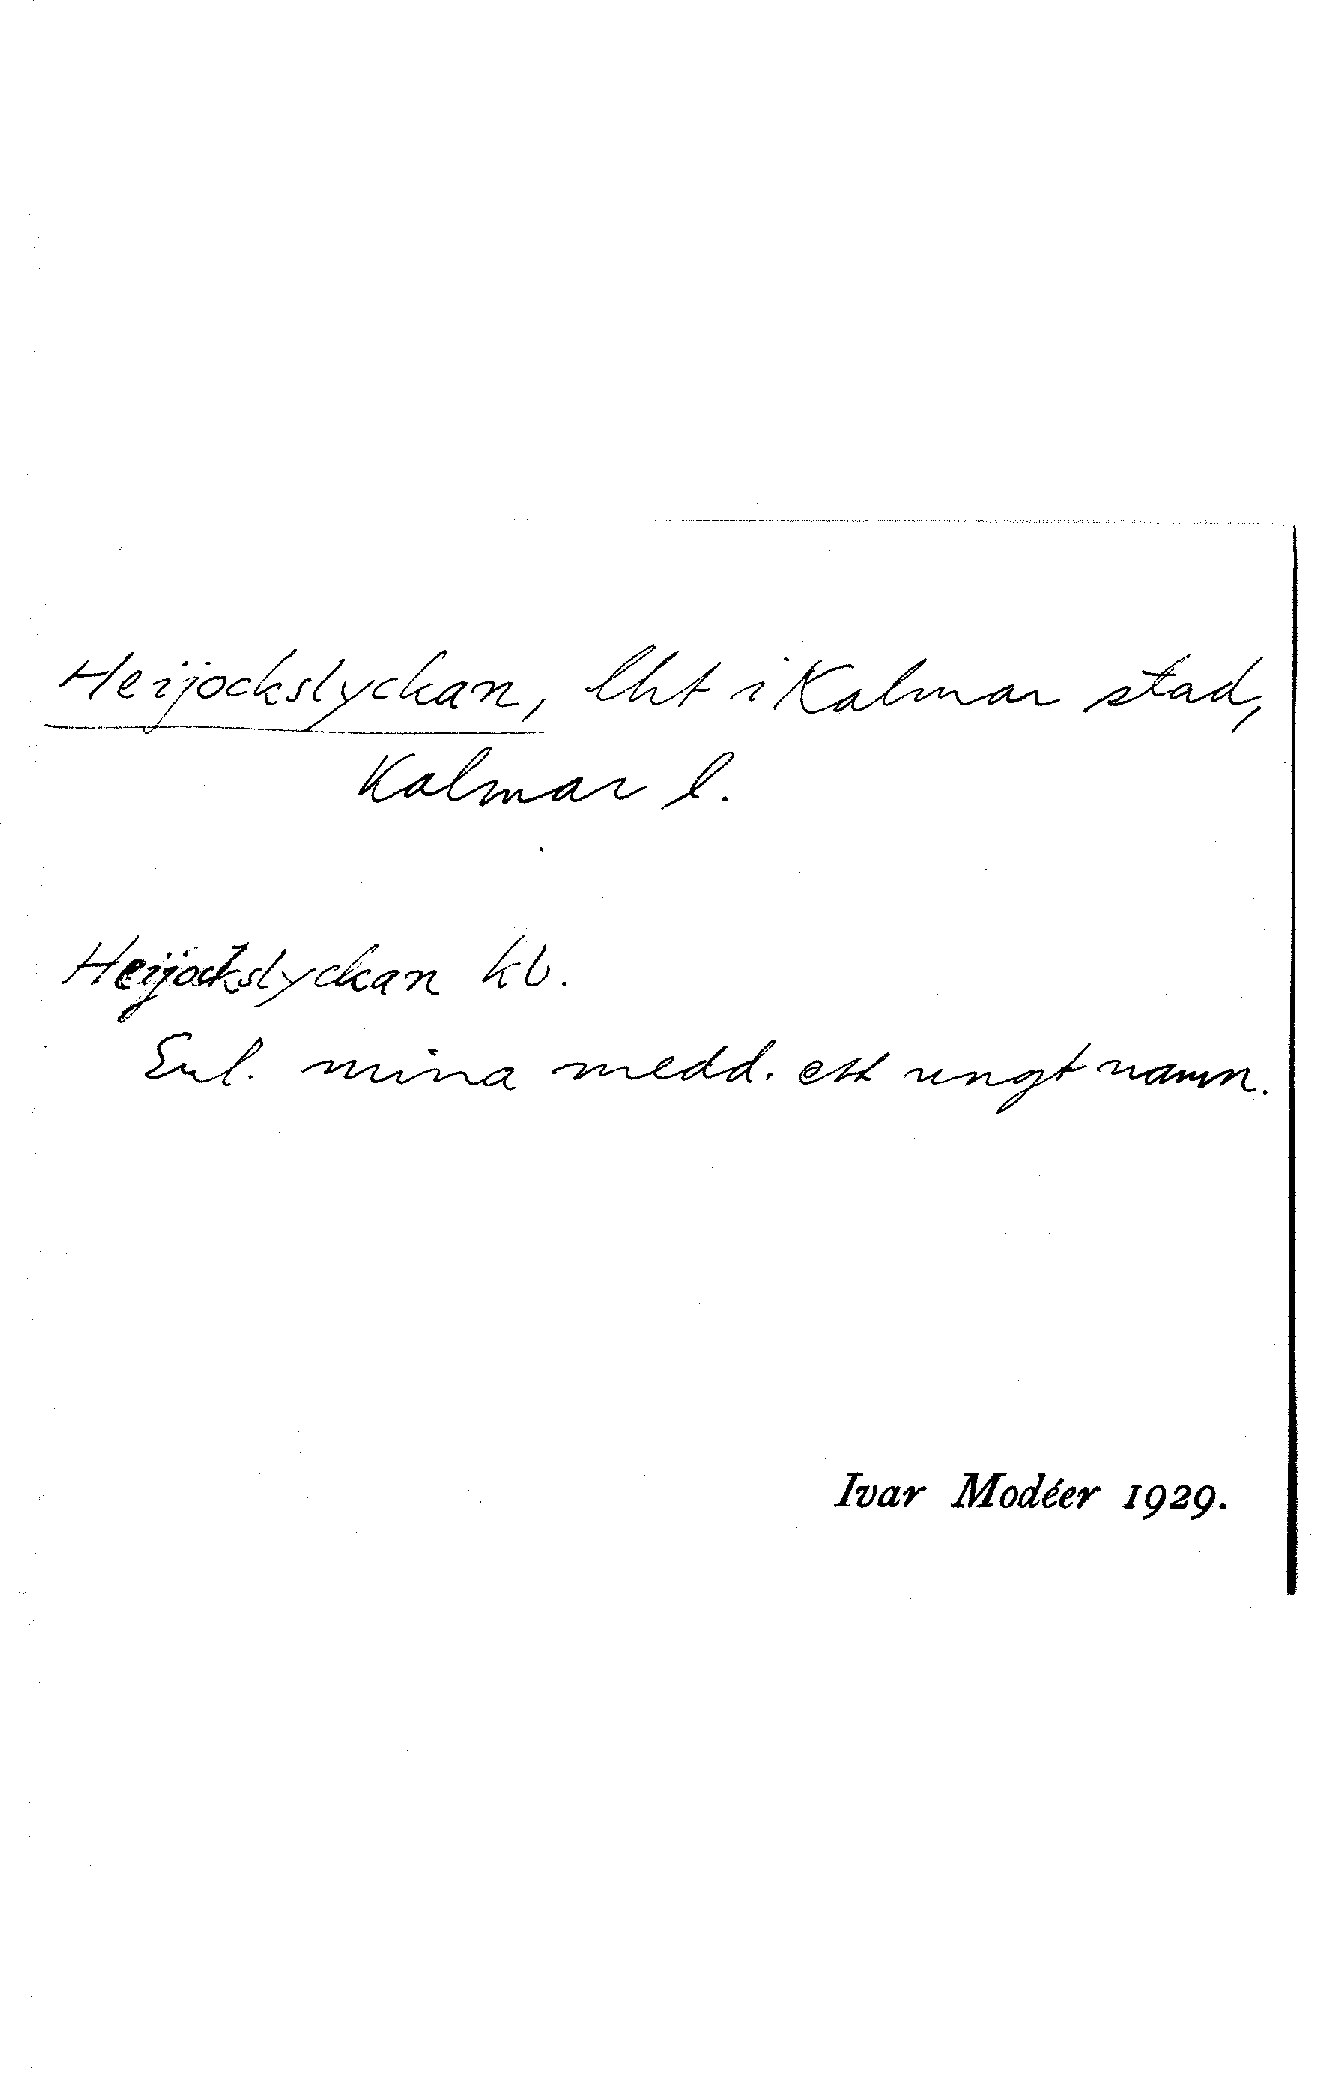 Heijockslyckan, lht i Kalmar stad,
Kalmar l.
Heijockslyckan kb.
Enl. mina medd. ett ungt namn.
Ivar Modéer 1929.